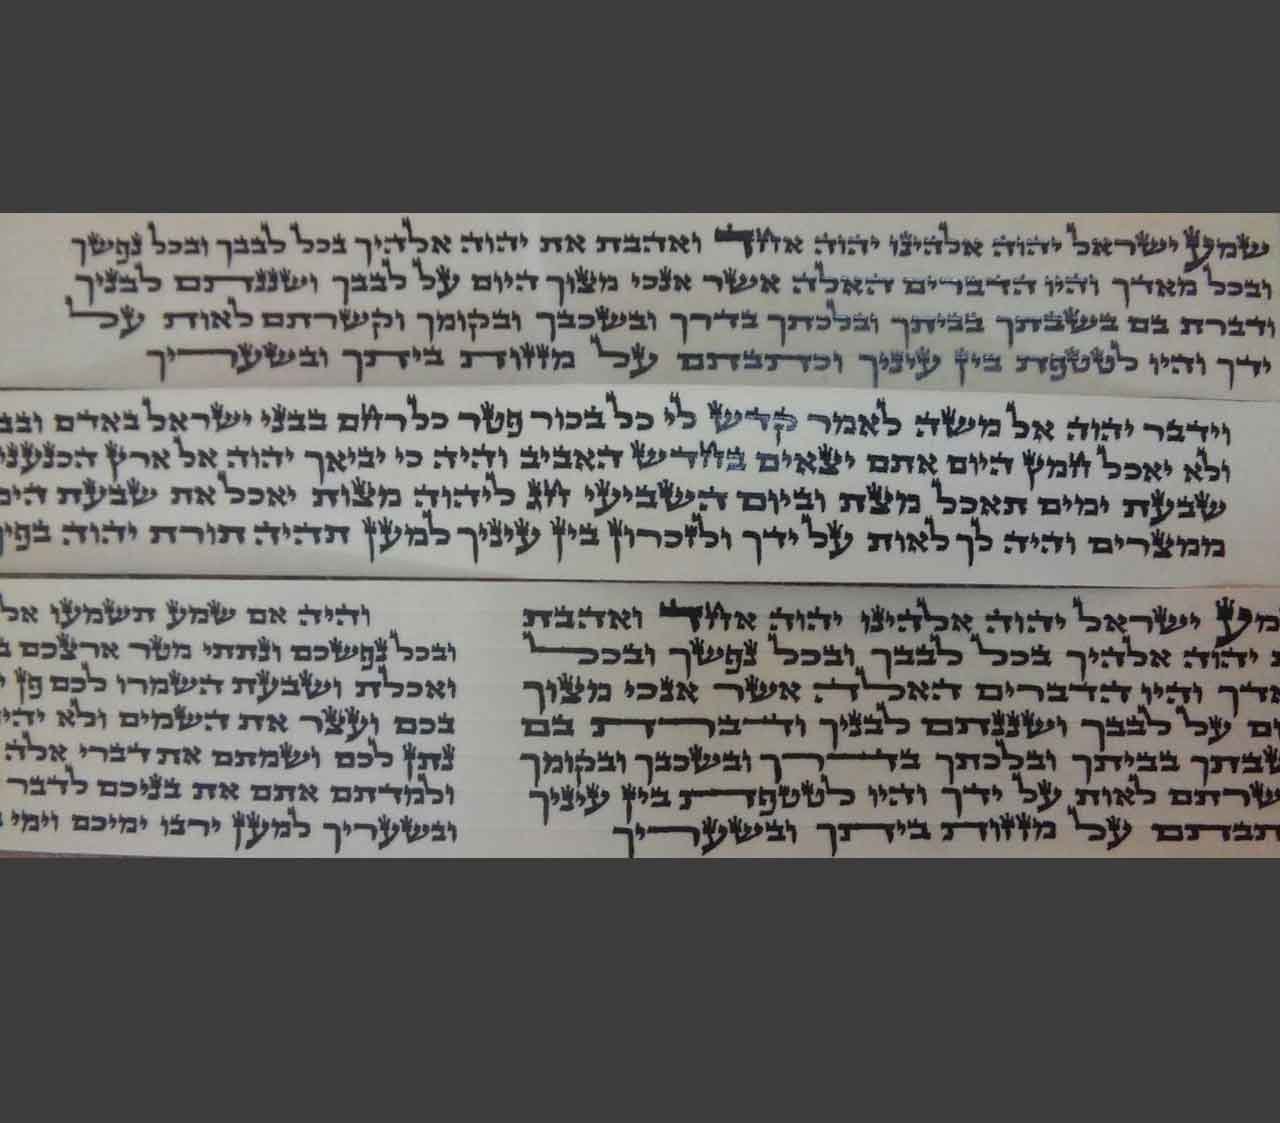 שמע ישראל יהוה אלהינו יהוה אחד ואהבת את יהוה אלהיך בכל לבבך ובכל נפשך
ובכל מאדך והיו הדברים האלה אשר אנכי מצוך היום על לבבך ושננתם לבניך
ודברת בם בשבתך בביתך ובלכתך בדרך ובשכבך ובקומך וקשרתם לאות על
ידך והיו לטטפת בין עיניך וכתבתם על מזזות ביתך ובשעריך
וידבר יהוה אל משה לאמר קדש לי כל בכור פטר כל רחם בבני ישראל באדם
ולא יאכל חמץ היום אתם יצאים בחדש האביב והיה כי יביאך יהוה אל ארץ הכנעני
שבעת ימים תאכל מצת וביום השביעי חג ליהוה מצות יאכל את שבעת
ממצרים והיה לך לאות על ידך ולזכרון בין עיניך למען תהיה תורת יהוה בפיך
מע ישראל יהוה אלהינו יהוה אחד ואהבת
יהוה אלהיך בכל לבבך ובכל נפשך ובכל
אדך והיו הדברים האלה אשר אנכי מצוך
ום על לבבך ושננתם לבניך ודברת בם
שבתך בביתך ובלכתך בדרך ובשכבך ובקומך
שרתם לאות על ידך והיו לטטפת בין עיניך
תבתם על מזזות ביתך ובשעריך
והיה אם שמע תשמעו אל
ובכל נפשכם ונתתי מטר ארצכם
ואכלת ושבעת השמרו לכם פן
בכם ועצר את השמים ולא
נתן לכם ושמתם את דברי אלה
ולמדתם אתם את בניכם לדבר
ובשעריך למען ירבו ימיכם וימי